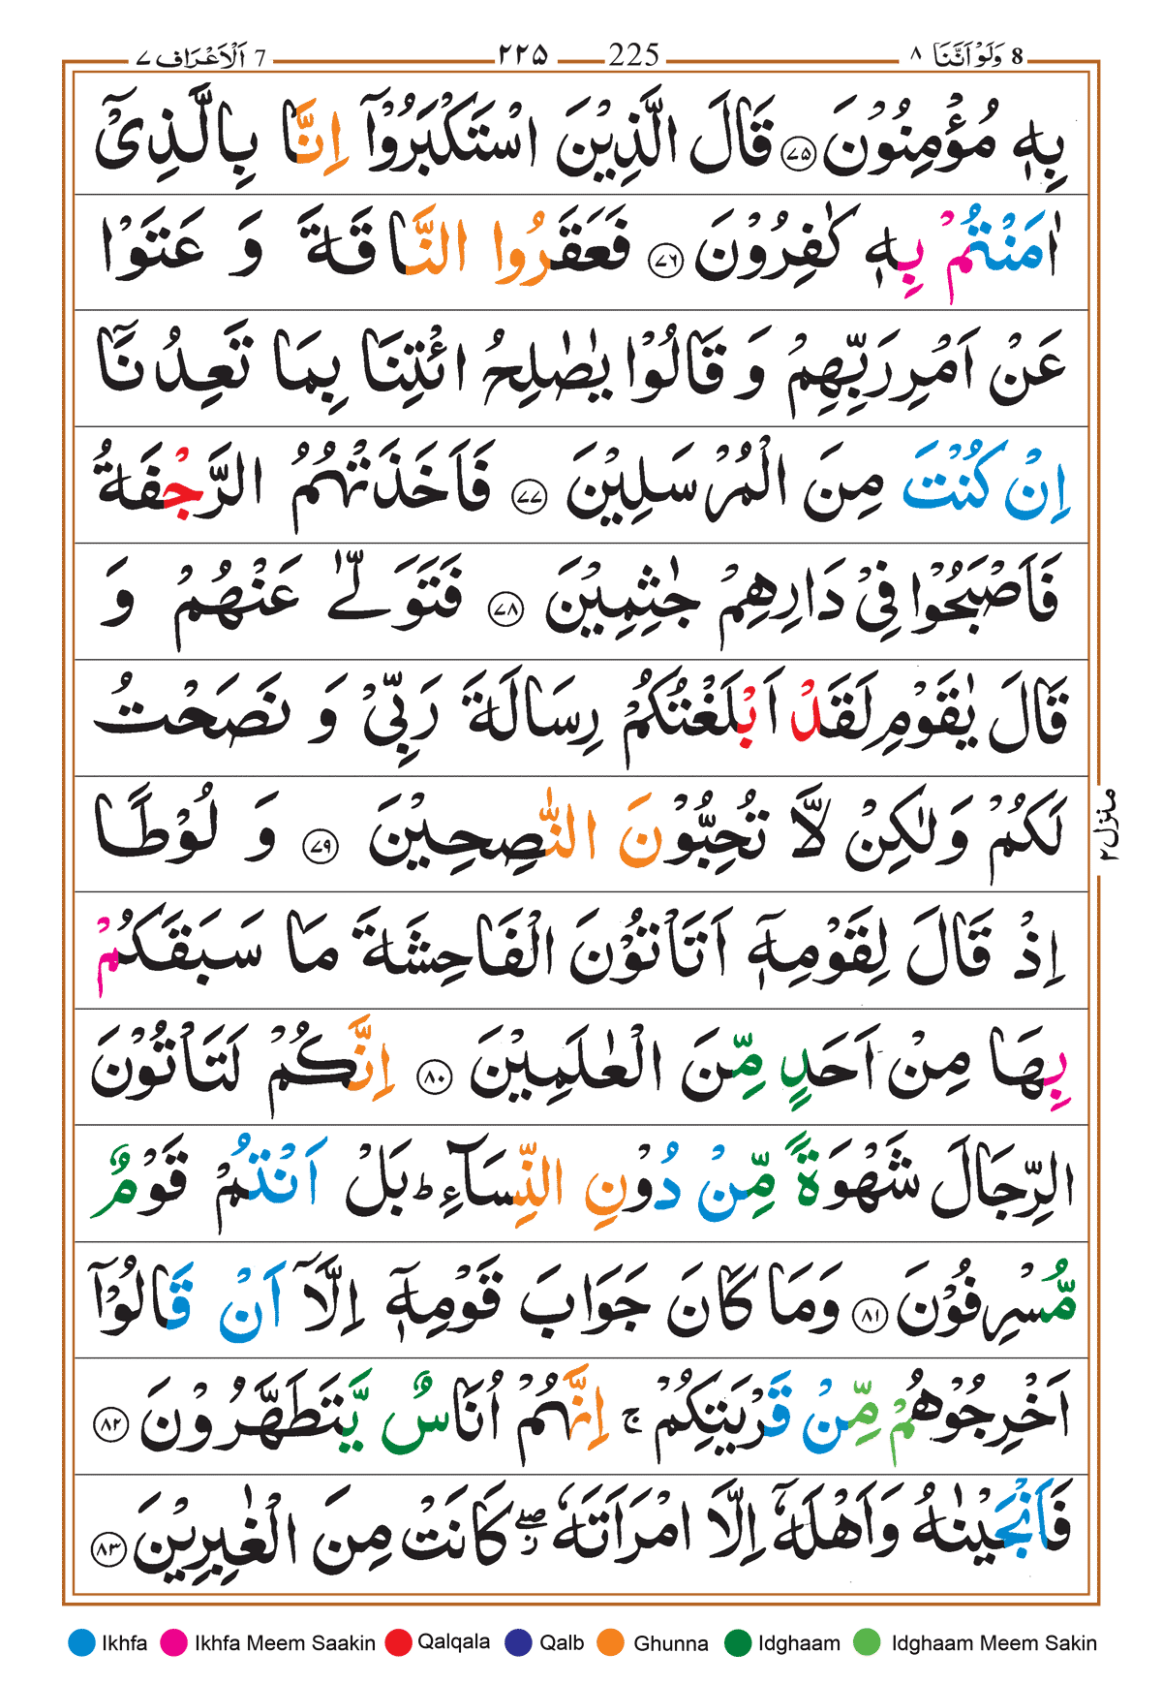 8 وَلَوْ اَنَّنَا ٨ 225 ٢٢٥ 7 اَلْاَعْرَاف ٧
بِهٖ مُؤْمِنُوْنَ ۝٧٥ قَالَ الَّذِيْنَ اسْتَكْبَرُوْٓا اِنَّا بِالَّذِيْٓ
اٰمَنْتُمْ بِهٖ كٰفِرُوْنَ ۝٧٦ فَعَقَرُوا النَّاقَةَ وَ عَتَوْا
عَنْ اَمْرِ رَبِّهِمْ وَ قَالُوْا يٰصٰلِحُ ائْتِنَا بِمَا تَعِدُنَآ
اِنْ كُنْتَ مِنَ الْمُرْسَلِيْنَ ۝٧٧ فَاَخَذَتْهُمُ الرَّجْفَةُ
فَاَصْبَحُوْا فِيْ دَارِهِمْ جٰثِمِيْنَ ۝٧٨ فَتَوَلّٰى عَنْهُمْ وَ
قَالَ يٰقَوْمِ لَقَدْ اَبْلَغْتُكُمْ رِسَالَةَ رَبِّيْ وَ نَصَحْتُ
لَكُمْ وَلٰكِنْ لَّا تُحِبُّوْنَ النّٰصِحِيْنَ ۝٧٩ وَ لُوْطًا
اِذْ قَالَ لِقَوْمِهٖٓ اَتَاْتُوْنَ الْفَاحِشَةَ مَا سَبَقَكُمْ
بِهَا مِنْ اَحَدٍ مِّنَ الْعٰلَمِيْنَ ۝٨٠ اِنَّكُمْ لَتَاْتُوْنَ
الرِّجَالَ شَهْوَةً مِّنْ دُوْنِ النِّسَآءِ ؕ بَلْ اَنْتُمْ قَوْمٌ
مُّسْرِفُوْنَ ۝٨١ وَمَا كَانَ جَوَابَ قَوْمِهٖٓ اِلَّآ اَنْ قَالُوْٓا
اَخْرِجُوْهُمْ مِّنْ قَرْيَتِكُمْ ۚ اِنَّهُمْ اُنَاسٌ يَّتَطَهَّرُوْنَ ۝٨٢
فَاَنْجَيْنٰهُ وَاَهْلَهٗٓ اِلَّا امْرَاَتَهٗ ۖ كَانَتْ مِنَ الْغٰبِرِيْنَ ۝٨٣
منزل ٢
Ikhfa Ikhfa Meem Saakin Qalqala Qalb Ghunna Idghaam Idghaam Meem Sakin